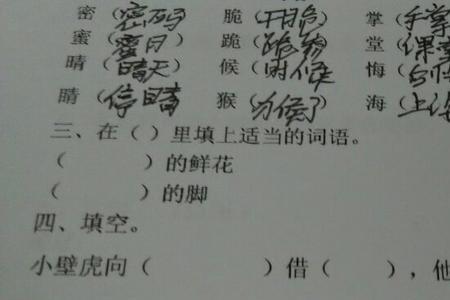 密（密码） 脆（干脆 掌（手掌
蜜（蜜月） 跪（跪 堂（课堂
晴（晴天） 候（时候 悔（
睛（停睛 猴（ 海（上海
三、在（ ）里填上适当的词语。
（ ）的鲜花
（ ）的脚
四、填空。
小壁虎向（ ）借（ ），他